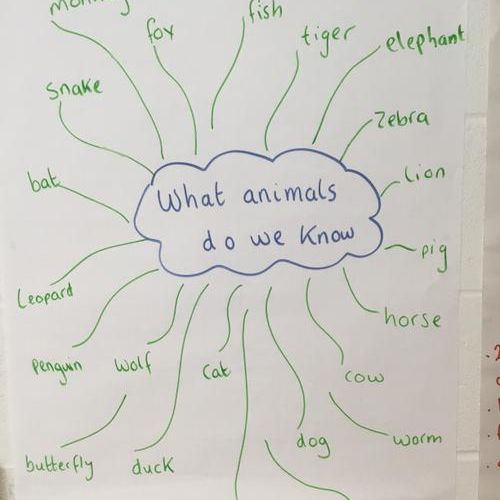 fox
fish
tiger
elephant
snake
zebra
bat
lion
What animals
do we know
pig
Leopard
horse
penguin
wolf
cat
cow
dog
worm
butterfly
duck